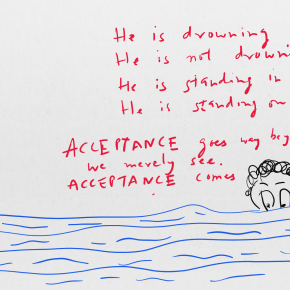 He is drowning
He is not drowni
He is standing in
He is standing on
ACCEPTANCE goes way bey
we merely see.
ACCEPTANCE comes